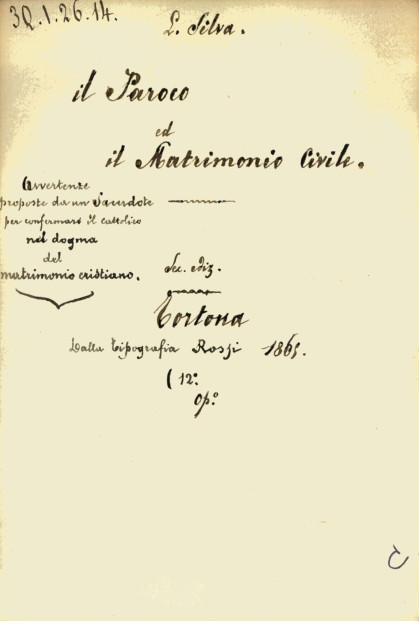 3Q.1.26.14.
L. Silva.
il Paroco
ed
il Matrimonio Civile.
Avvertenze
proposte da un Sacerdote
per confermare il cattolico
nel dogma
del
matrimonio cristiano.
Sec. ediz.
Tortona
Dalla Tipografia Rossi 1865.
( 12º
opº
C